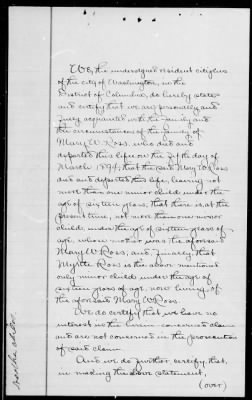 We, the undersigned resident citizens
of the city of Washington, in the
District of Columbia, do hereby state
and certify that we are personally and
fully acquainted with the family and
the circumstances of the family of
Mary W. Ross, who died and
departed this life on the fifth day of
March 1894; that the said Mary W. Ross
did and departed this life, leaving not
more than one minor child under the
age of sixteen years; that there is at the
present time, not more than one minor
child, under the age of sixteen years of
age, whose mother was the aforesaid
Mary W. Ross; and, finally, that
Myrtle Ross is the above mentioned
only minor child under the age of
sixteen years of age now living, of
the aforesaid Mary W. Ross.
We do certify that we have no
interest in the herein concerned claim
and are not concerned in the prosecution
of said claim.
And we do further certify, that,
in making the above statement,
(over)